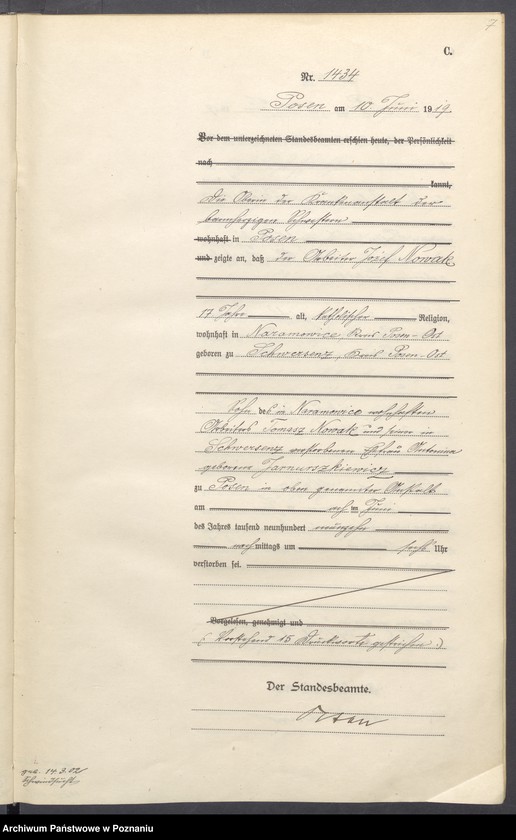 7
C.
Nr. 1434
Posen am 10 Juni 1919.
Vor dem unterzeichneten Standesbeamten erschien heute, der Persönlichkeit
nach
kannt,
Die Oberin der Krankenanstalt der
barmherzigen Schwestern
wohnhaft in Posen
und zeigte an, daß der Arbeiter Józef Nowak
17 Jahre alt, katholischer Religion,
wohnhaft in Naramowice Kreis Posen-Ost
geboren zu Schwersenz, Kreis Posen-Ost
Sohn des in Naramowice wohnhaften
Arbeiters Tomasz Nowak und seiner in
Schwersenz verstorbenen Ehefrau Antonina
geborene Jarnuszkiewicz
zu Posen in oben genannter Anstalt
am acht ten Juni
des Jahres tausend neunhundert neunzehn
nachmittags um sechs Uhr
verstorben sei.
Vorgelesen, genehmigt und
(: Vorstehend 15 Druckworte gestrichen :)
Der Standesbeamte.
geb. 14.3.02
Schwindsucht
Archiwum Państwowe w Poznaniu